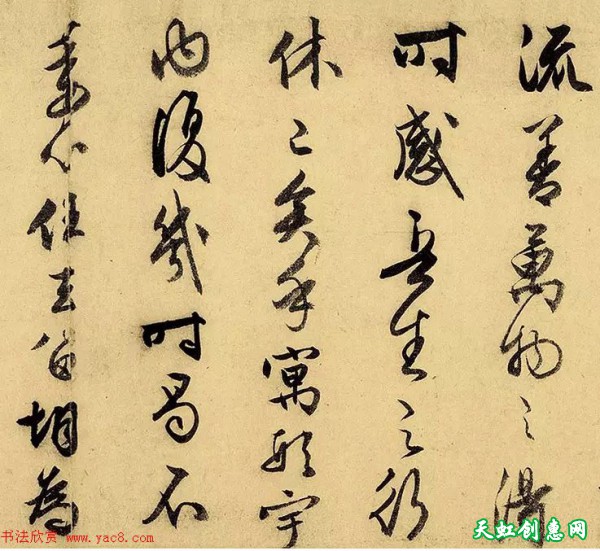 流善萬物之得
時感吾生之行
休已矣乎寓形宇
內復幾時曷不
委心任去留胡為
书法欣赏 www.yac8.com
天虹创惠网